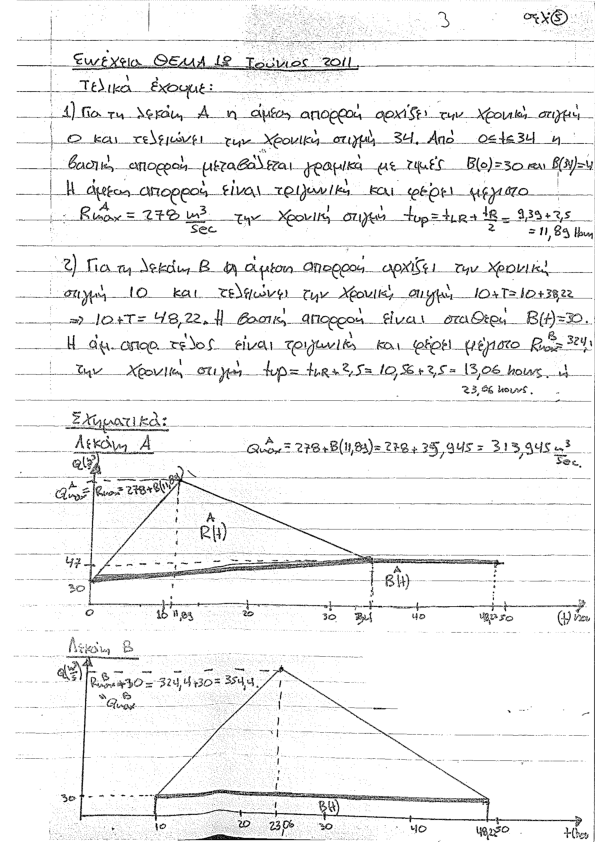 3 σελ ⑤
Συνέχεια ΘΕΜΑ 1β Ιούνιος 2011
Τελικά έχουμε:
1) Για τη λεκάνη Α η άμεση απορροή αρχίζει την χρονική στιγμή
0 και τελειώνει την χρονική στιγμή 34. Από 0≤t≤34 η
βασική απορροή μεταβάλεται γραμικά με τιμές B(0)=30 και B(34)=4
Η άμεση απορροή είναι τριγωνική και φέρει μέγιστο
R^A_max = 278 m³/sec την χρονική στιγμή t_up = t_LR + t_R/2 = 9,39+2,5
= 11,89 Hours
2) Για τη λεκάνη Β η άμεση απορροή αρχίζει την χρονική
στιγμή 10 και τελειώνει την χρονική στιγμή 10+T=10+38,22
⇒ 10+T= 48,22. Η βασική απορροή είναι σταθερή B(t)=30.
Η άμ. απορ. τέλος είναι τριγωνική και φέρει μέγιστο R^B_max = 324,
την χρονική στιγμή t_up = t_LR + 2,5 = 10,56+2,5 = 13,06 hours. ή
23,06 hours.
Σχηματικά:
Λεκάνη Α Q^A_max = 278 + B(11,89) = 278 + 35,945 = 313,945 m³/sec.
Q(m³/s)
Q^A_max = R_max = 278+B(11,89)
A
R(t)
47
A
B(t)
30
0 10 11,89 20 30 34 40 48,22 50 (t)
Λεκάνη Β
Q(m³/s)
R^B_max + 30 = 324,4 + 30 = 354,4.
" Q^B_max
30
B(t)
10 20 23,06 30 40 48,22 50 t(hou